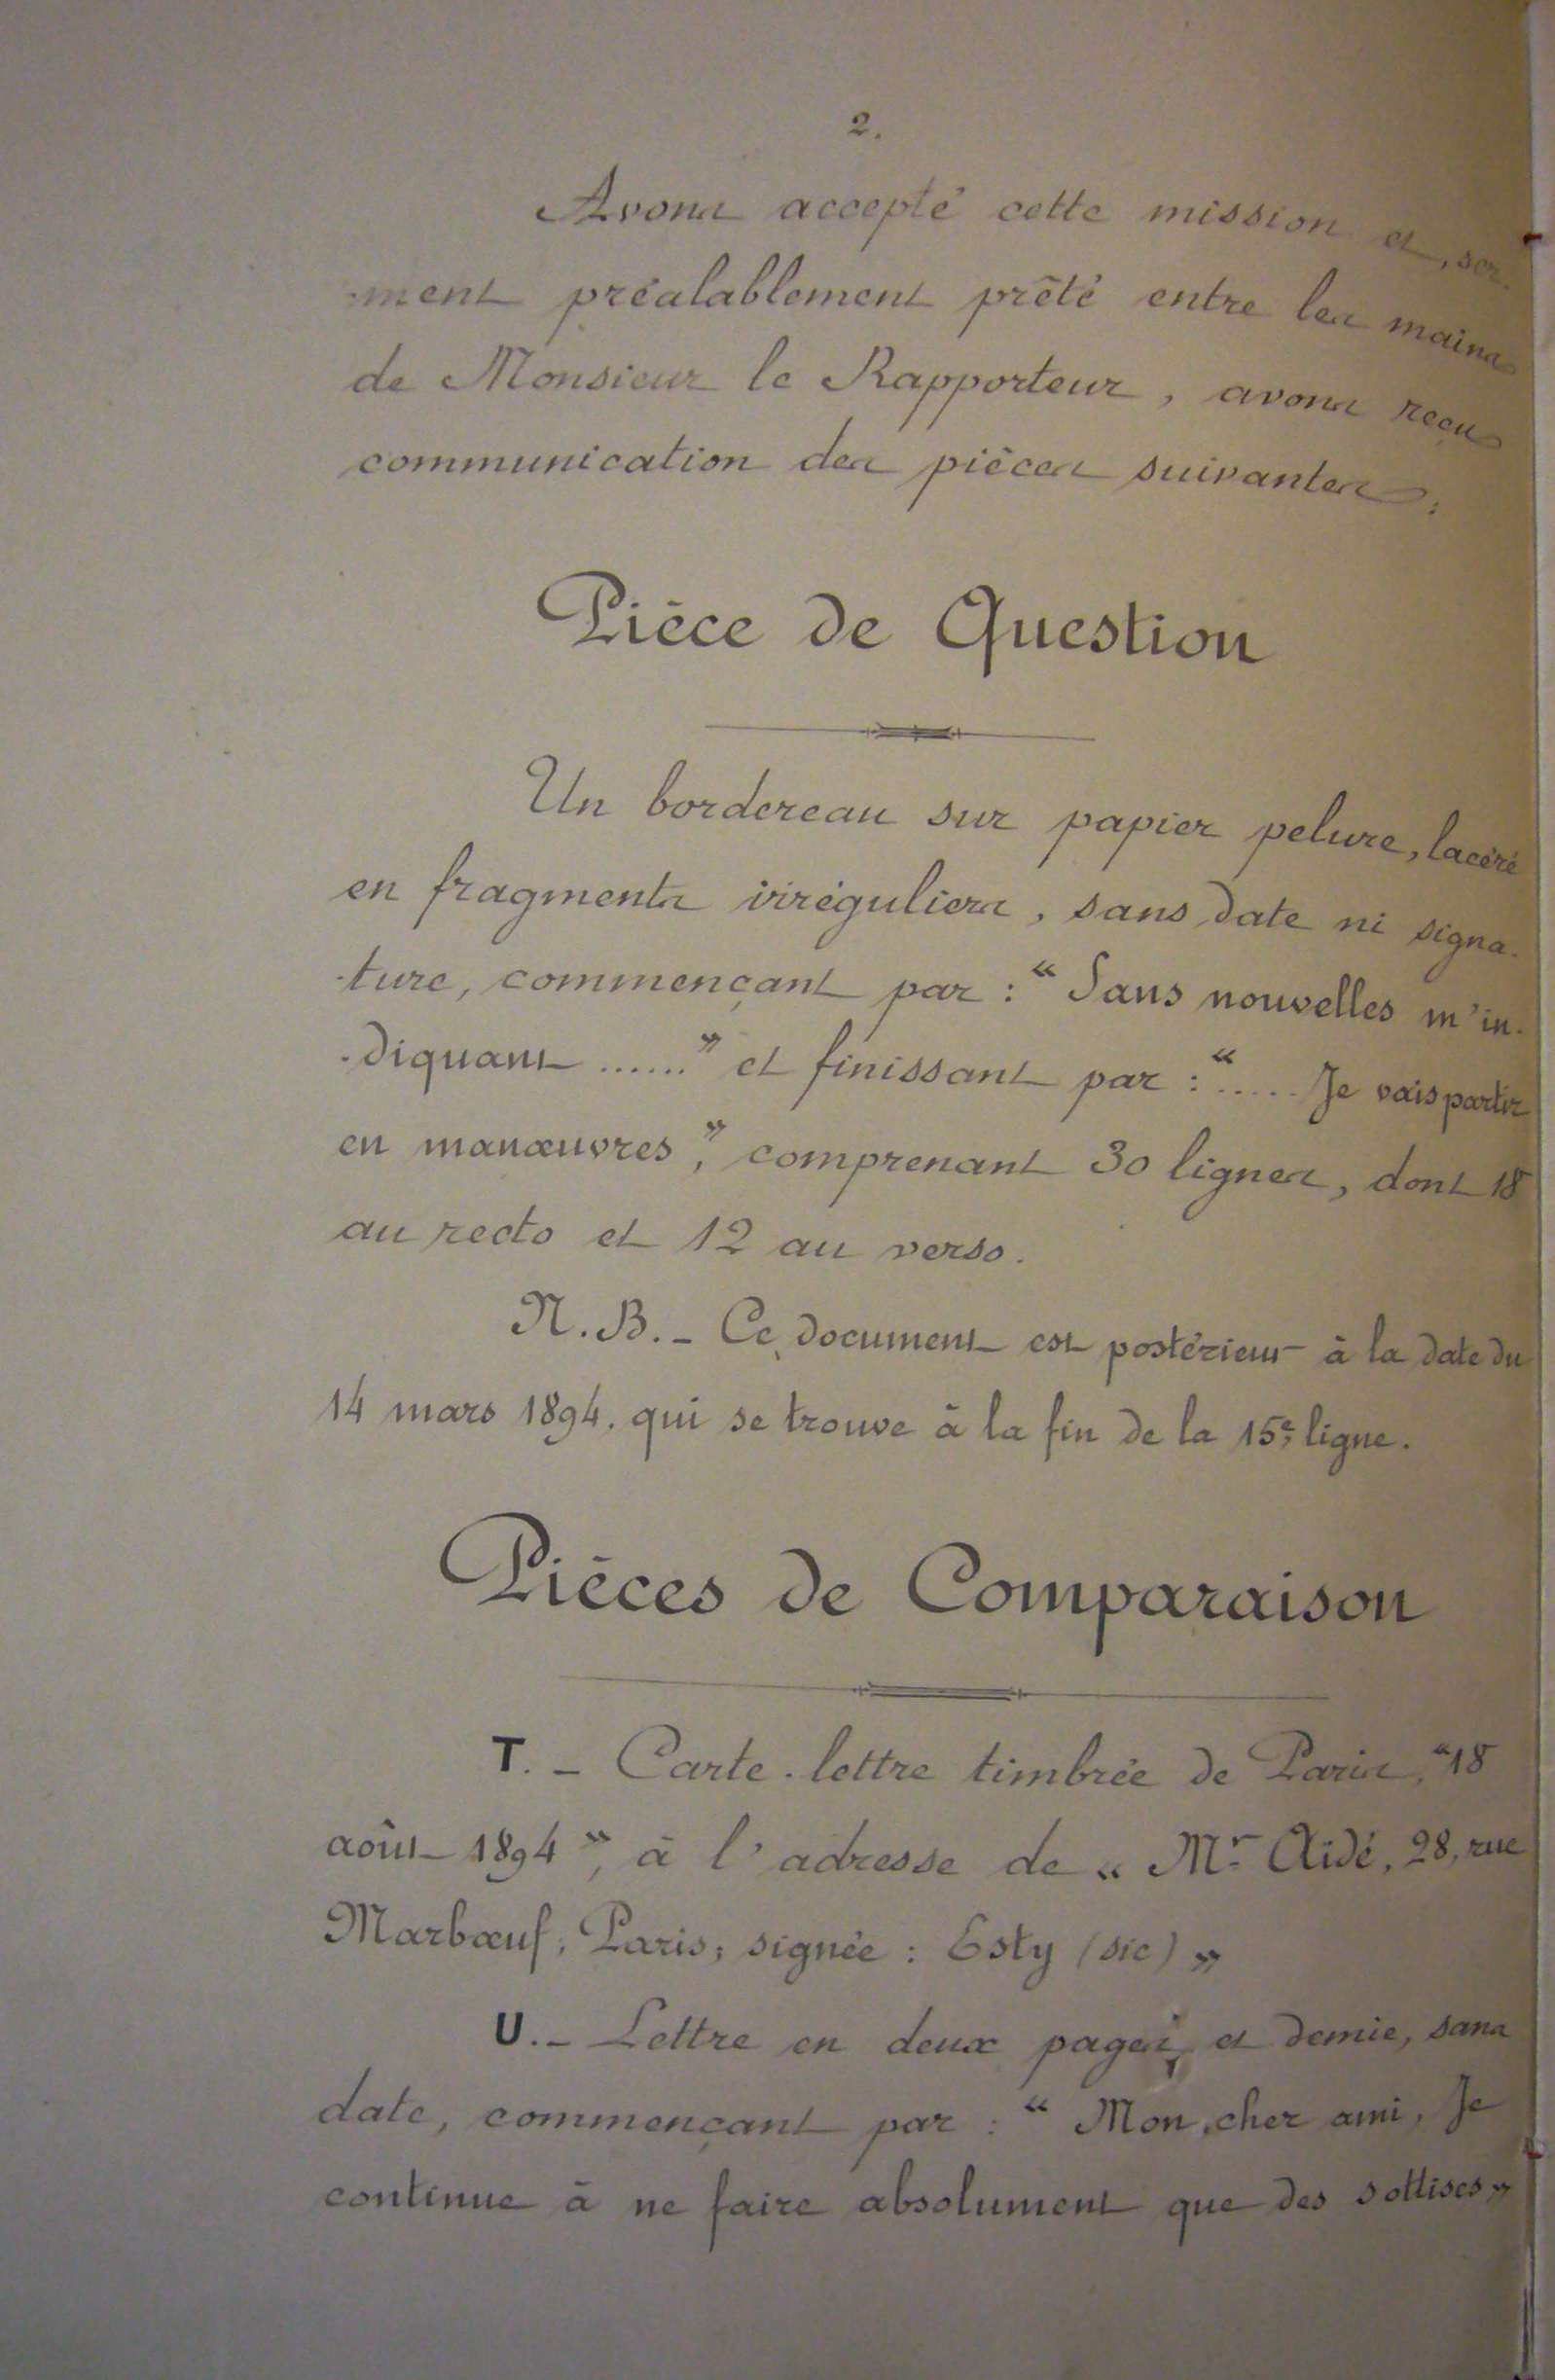 2.
Avons accepté cette mission et, ser-
-ment préalablement prêté entre les mains
de Monsieur le Rapporteur, avons reçu
communication des pièces suivantes :
Pièce de Question
Un bordereau sur papier pelure, lacéré
en fragments irréguliers, sans date ni signa-
-ture, commençant par : “ Sans nouvelles m'in-
-diquant ...... ” et finissant par : “ ..... Je vais partir
en manœuvres ”, comprenant 30 lignes, dont 18
au recto et 12 au verso.
N.B. - Ce document est postérieur à la date du
14 mars 1894. qui se trouve à la fin de la 15e ligne.
Pièces de Comparaison
T. - Carte-lettre timbrée de Paris, “ 18
août 1894 ”, à l'adresse de « Mr Aidé, 28, rue
Marbœuf, Paris; signée : Esty (sic) »
U. - Lettre en deux pages et demie, sans
date, commençant par : “ Mon cher ami, Je
continue à ne faire absolument que des sottises »